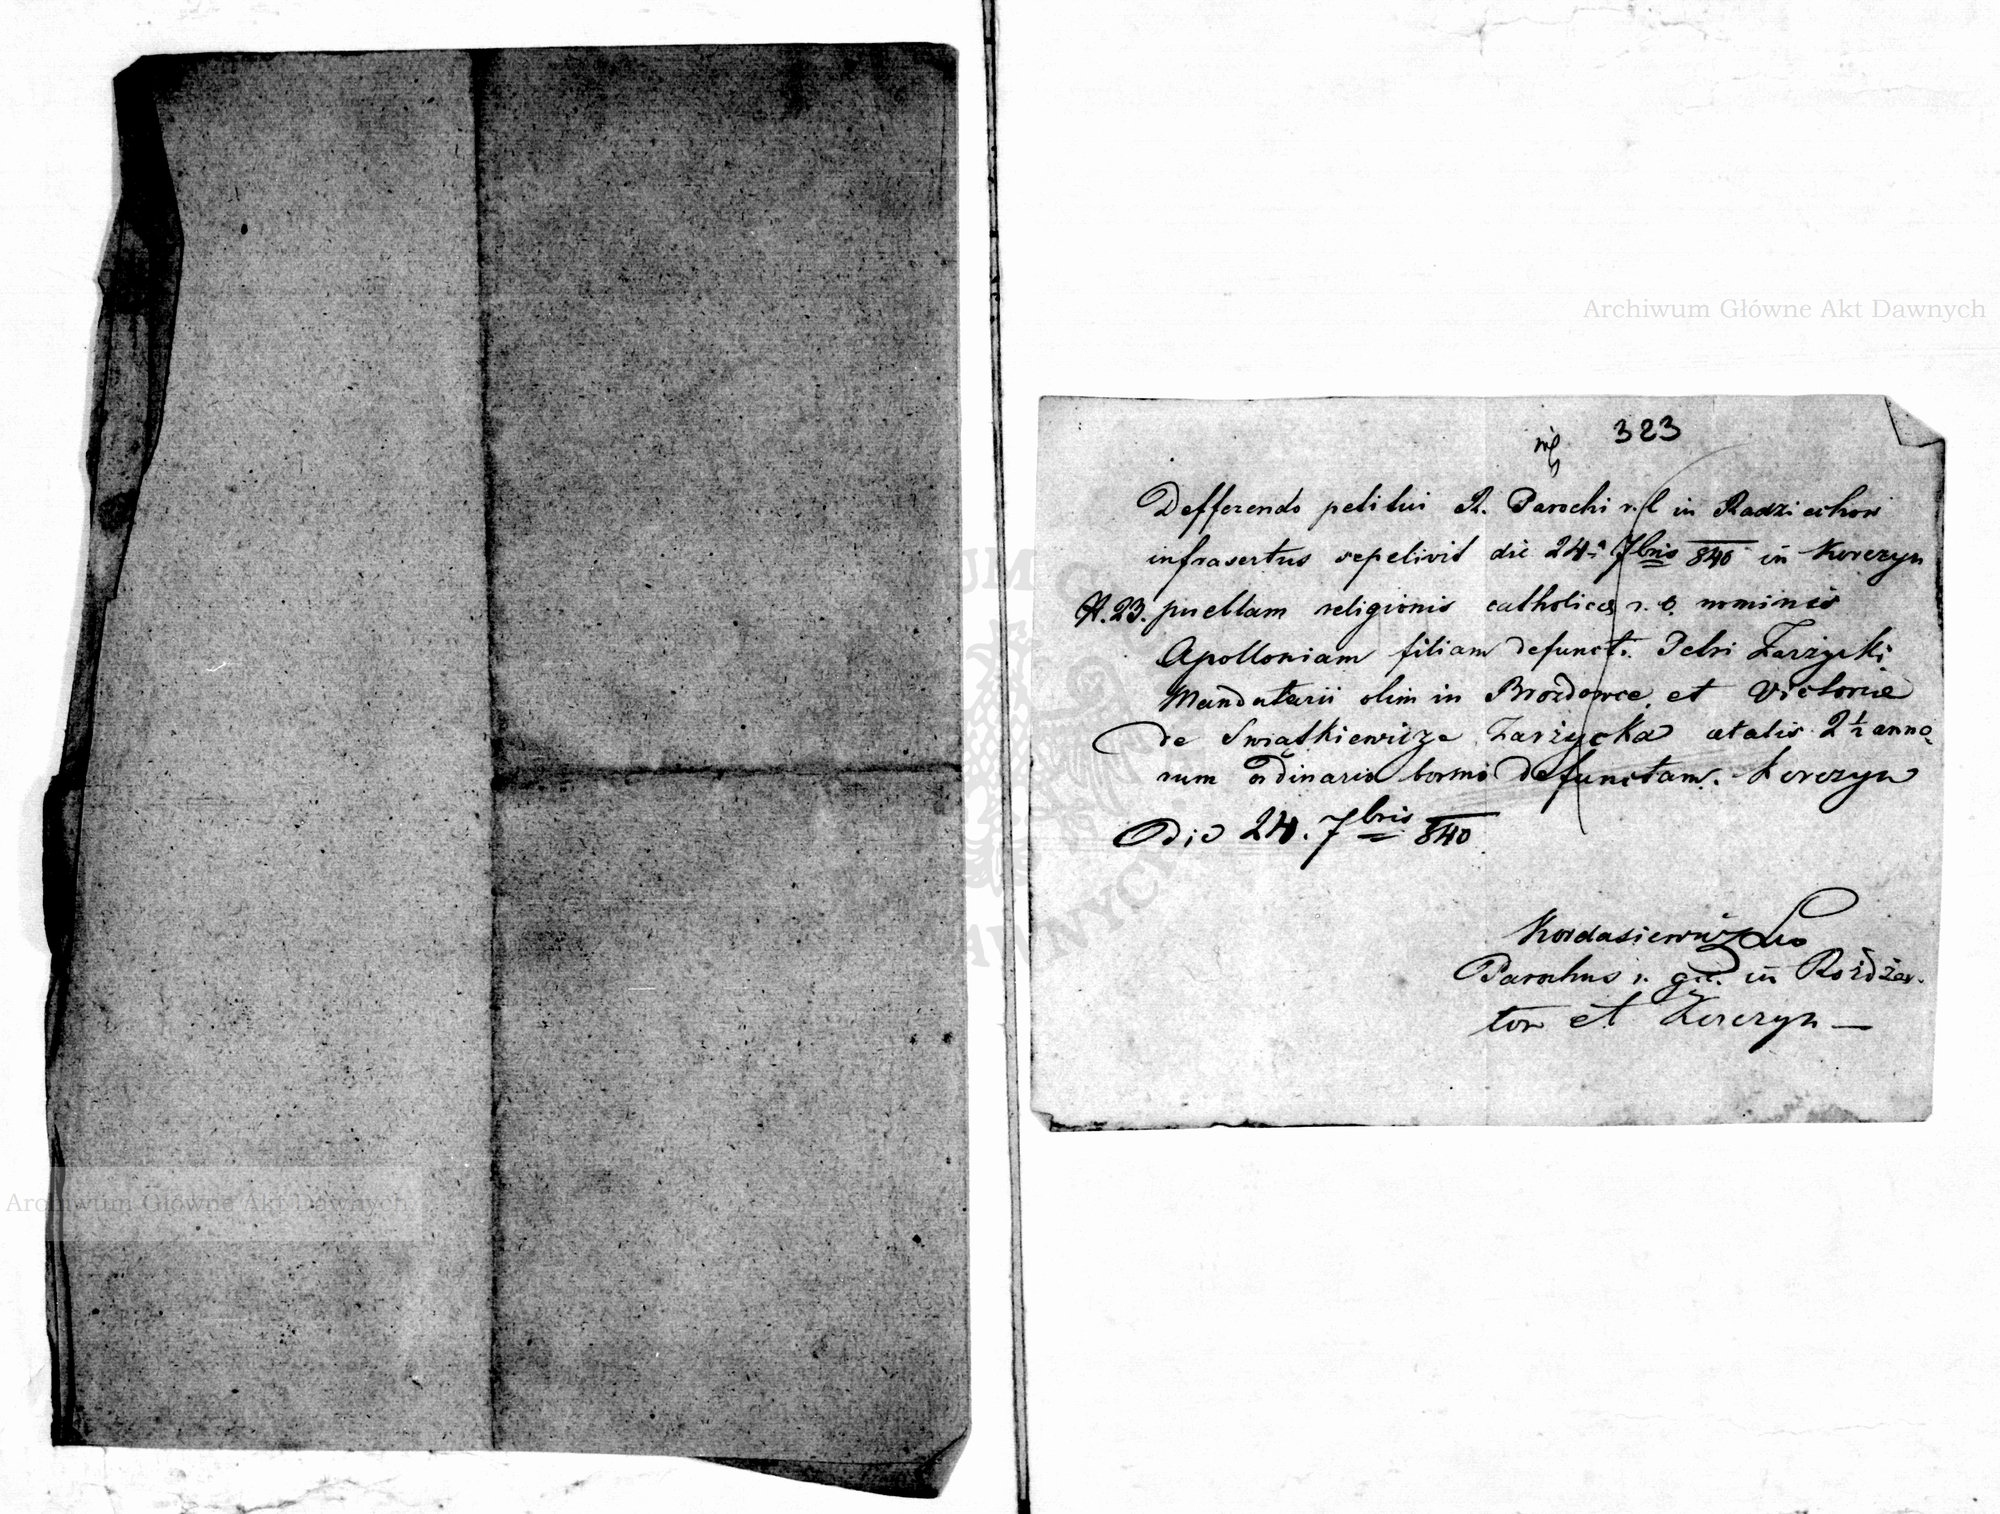 Archiwum Główne Akt Dawnych
323
Defferendo petitui R. Parochi r. l in Radziechow
infrascrtus sepelivit die 24ª 7bris 840 in Korczyn
N. 23. puellam religionis catholicae r. nominis
Apolloniam filiam defunct. Petri Zarzycki
Mandatarii olim in Brozdowce et Victorie
de Swiątkiewicze Zarzycka aetatis 2½ anno
rum ordinario defunctam. Korczyn
Die 24. 7bris 840
Kordasiewicz
Parochus r. gr. in Rożdżar-
low et Korczyn —
Archiwum Główne Akt Dawnych